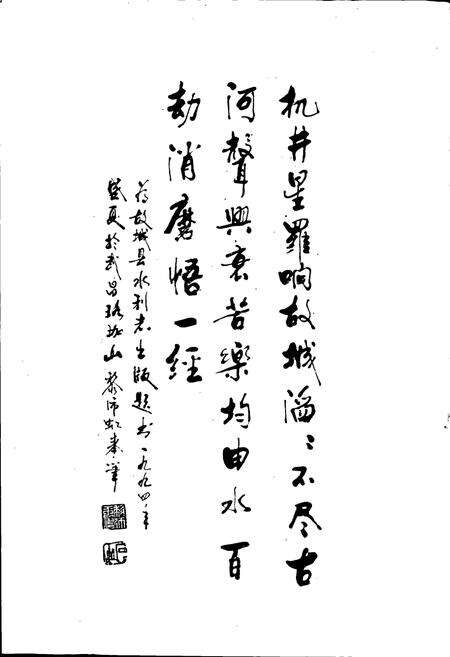 机井星羅响故城滔〻不尽古
河聲興衰苦樂均由水百
劫消磨悟一經
为故城县水利志出版题书一九九四年
盛夏於武昌珞珈山 黎沛虹 筆